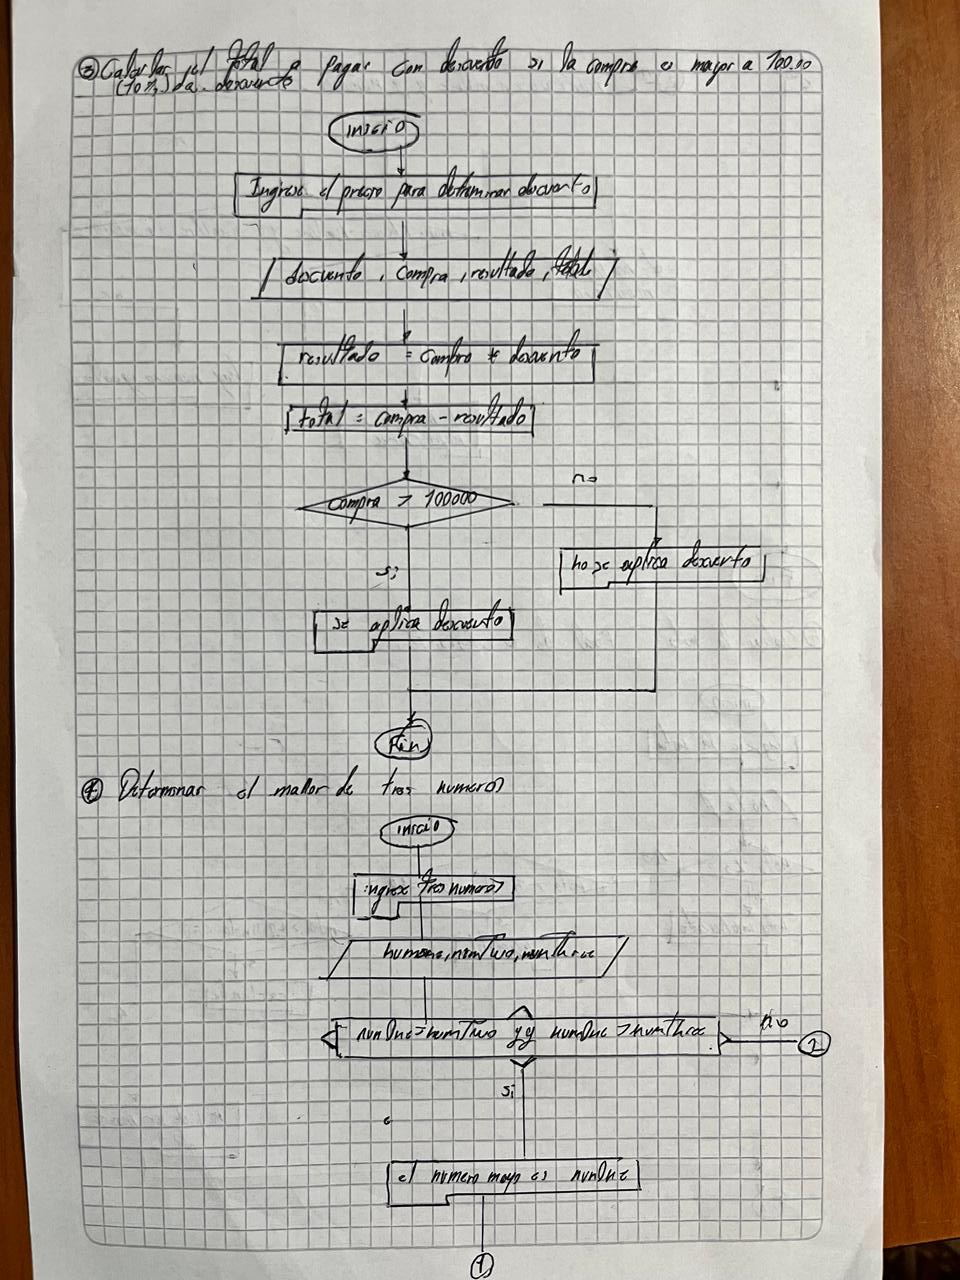 ③ Calcular el total a pagar con descuento si la compra es mayor a 100.00
(10%) da descuento
inicio
Ingrese el precio para determinar descuento
descuento, compra, resultado, total
resultado = compra * descuento
total = compra - resultado
compra > 100000
no
no se aplica descuento
si
se aplica descuento
Fin
④ Determinar el mallor de tres numeros
inicio
ingrese tres numeros
numone, numTwo, numthree
numOne>numTwo yy numOne>numthree
no
2
si
el numero mayo es numOne
1